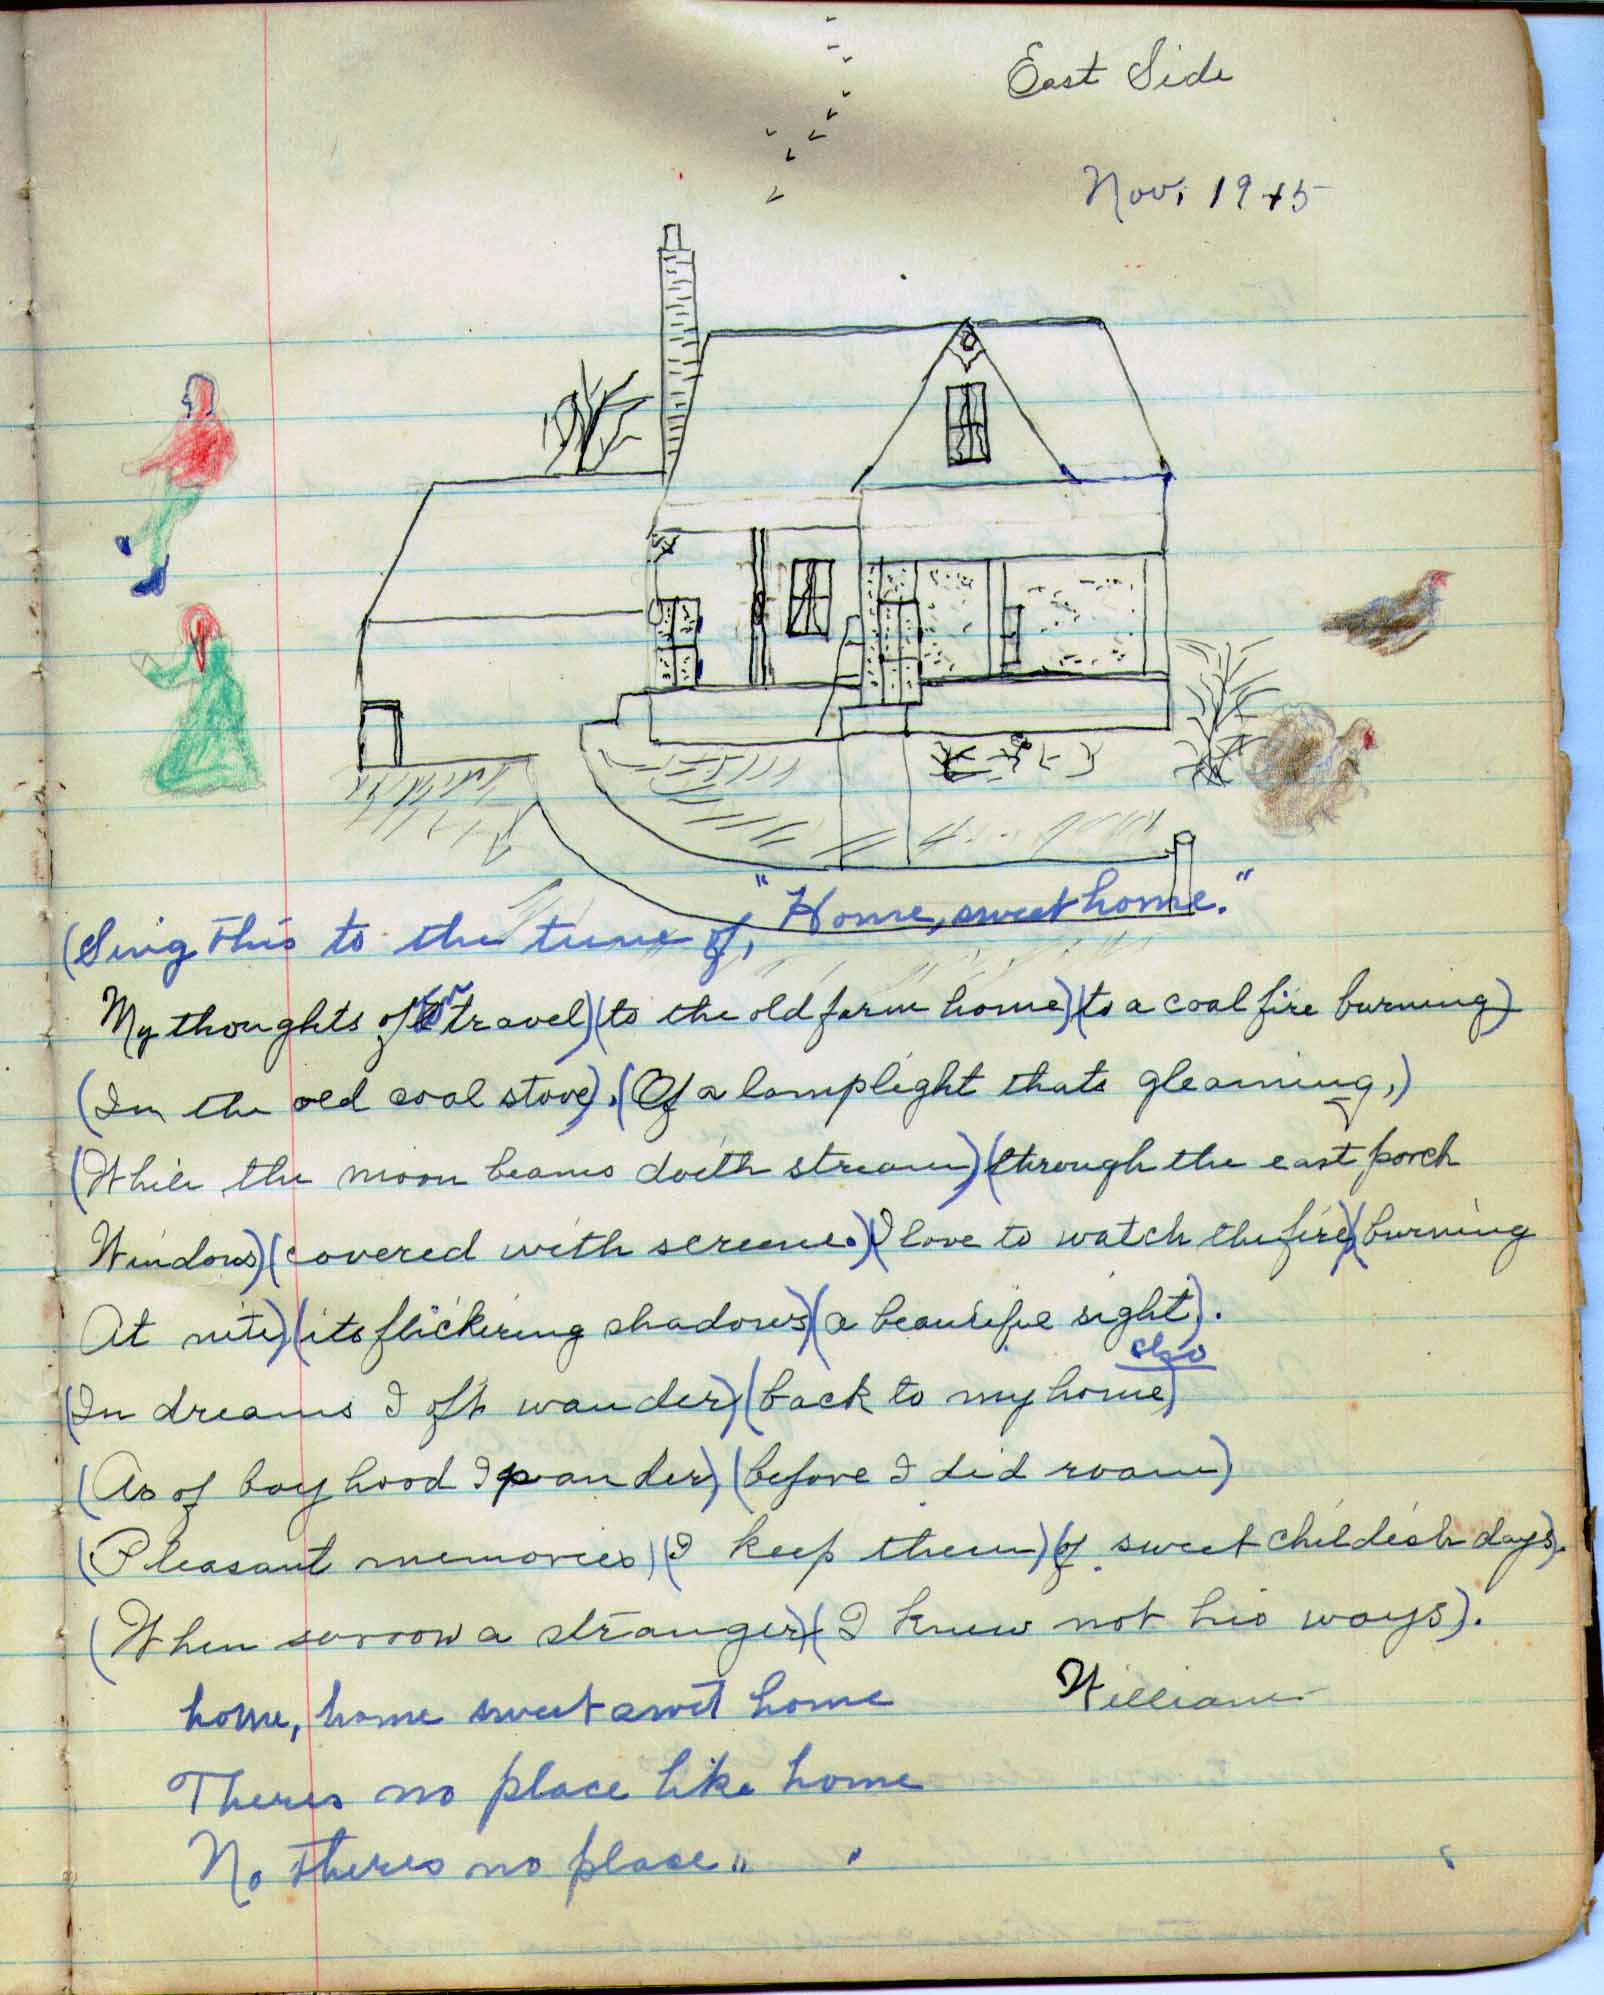 East Side
Nov. 1945
(Sing this to the tune of, "Home, sweet home."
My thoughts often travel)(to the old farm home)(to a coal fire burning)
(In the old coal stove).(Of a lamplight thats gleaming,)
(While the moon beams doeth stream)(through the east porch
Windows)(covered with screens.)(I love to watch the fire)(burning
At nite)(its flickering shadows)(a beautiful sight).
(In dreams I oft wander)(back to my home)
(As of boyhood I pander)(before I did roam)
(Pleasant memories)(I keep them)(of sweet childish days).
(When sorrow a stranger)(I knew not his ways).
home, home sweet sweet home
William
Theres no place like home
No theres no place " "